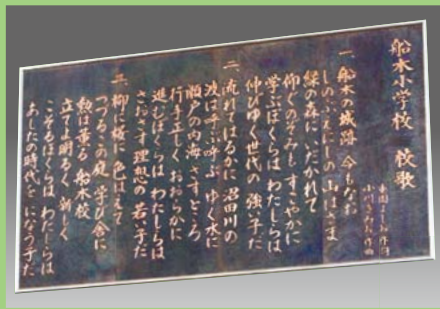 船木小学校 校歌
作詞
小川 作曲
一 船木の城跡 今もなお
しのぶ の 山はさま
緑の森に いだかれて
仰ぐのぞみも すこやかに
学ぶぼくらは わたしらは
伸びゆく世代の 強い子だ
二 流れてはるかに 沼田川の
波は呼ぶ呼ぶ ゆく水に
瀬戸の内海 さすところ
行手正しく おおらかに
進むぼくらは わたしらは
さおさす理想の 若い子だ
三 柳に桜に 色はえて
つづるこの庭 学び舎に
勲は薫る 船木校
立てよ明るく 新しく
こぞるぼくらは わたしらは
あしたの時代を になう子だ